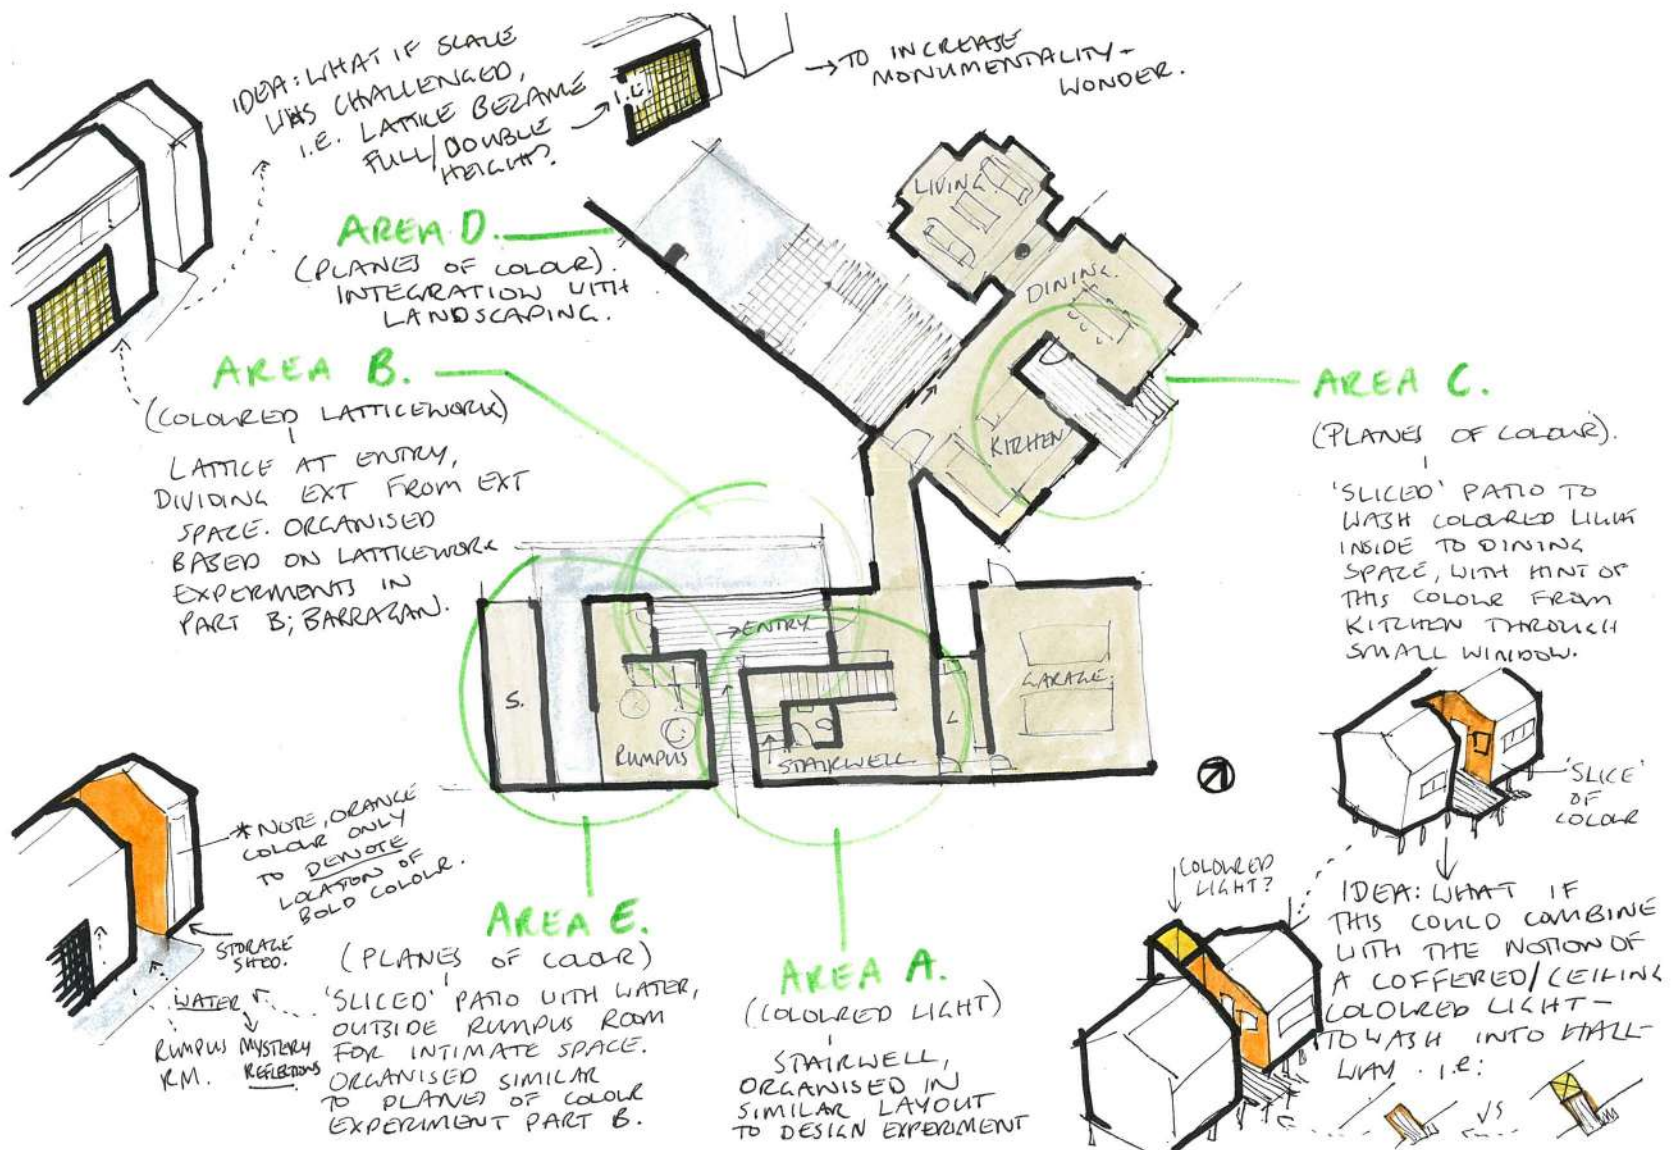 IDEA: WHAT IF SCALE
WAS CHALLENGED,
I.E. LATTICE BECAME
FULL/DOUBLE
HEIGHT?
I.E.
→ TO INCREASE
MONUMENTALITY -
WONDER.
AREA D.
(PLANES OF COLOUR).
INTEGRATION WITH
LANDSCAPING.
AREA B.
(COLOURED LATTICEWORK)
LATTICE AT ENTRY,
DIVIDING EXT FROM EXT
SPACE. ORGANISED
BASED ON LATTICEWORK
EXPERIMENTS IN
PART B; BARRAGAN.
LIVING.
DINING.
KITCHEN
→ENTRY
S.
RUMPUS
STAIRWELL
L
GARAGE.
AREA C.
(PLANES OF COLOUR).
'SLICED' PATIO TO
WASH COLOURED LIGHT
INSIDE TO DINING
SPACE, WITH HINT OF
THIS COLOUR FROM
KITCHEN THROUGH
SMALL WINDOW.
'SLICE'
OF
COLOUR
IDEA: WHAT IF
THIS COULD COMBINE
WITH THE NOTION OF
A COFFERED/CEILING
COLOURED LIGHT -
TO WASH INTO HALL-
WAY. i.e:
VS
COLOURED
LIGHT?
* NOTE, ORANGE
COLOUR ONLY
TO DENOTE
LOCATION OF
BOLD COLOUR.
STORAGE
SHED.
WATER
RUMPUS
RM.
MYSTERY
REFLECTIONS
AREA E.
(PLANES OF COLOUR)
'SLICED' PATIO WITH WATER,
OUTSIDE RUMPUS ROOM
FOR INTIMATE SPACE.
ORGANISED SIMILAR
TO PLANES OF COLOUR
EXPERIMENT PART B.
AREA A.
(COLOURED LIGHT)
STAIRWELL,
ORGANISED IN
SIMILAR LAYOUT
TO DESIGN EXPERIMENT